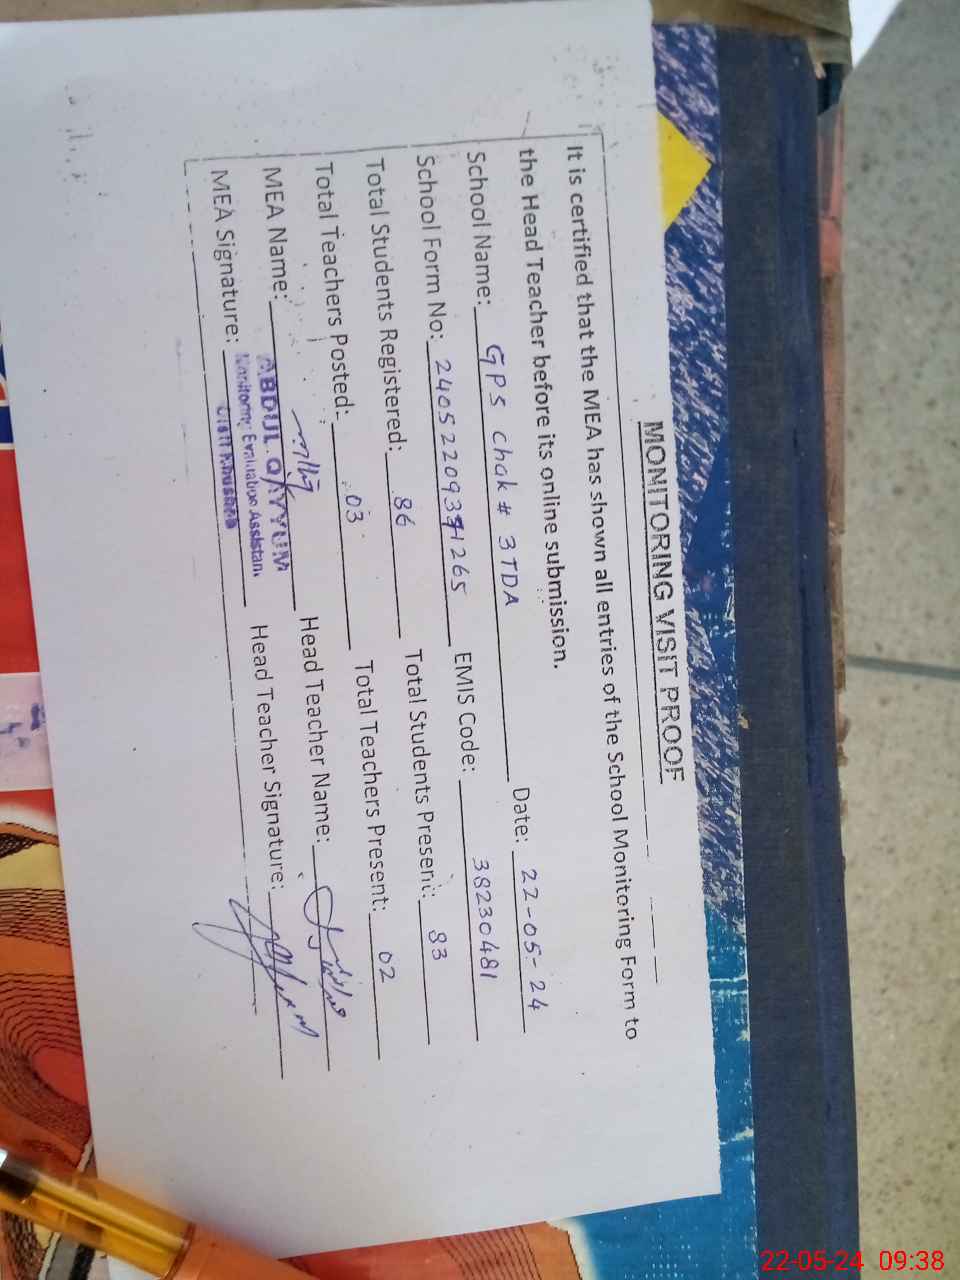 MONITORING VISIT PROOF
It is certified that the MEA has shown all entries of the School Monitoring Form to
the Head Teacher before its online submission.
School Name: GPS Chak # 3 TDA Date: 22-05-24
School Form No: EMIS Code: 38230481
Total Students Registered: 86 Total Students Present: 83
Total Teachers Posted: 03 Total Teachers Present: 02
MEA Name: ABDUL QAYYUM Head Teacher Name:
MEA Signature: Monitoring Evaluation Assistant Head Teacher Signature:
Distt Khushab
22-05-24 09:38